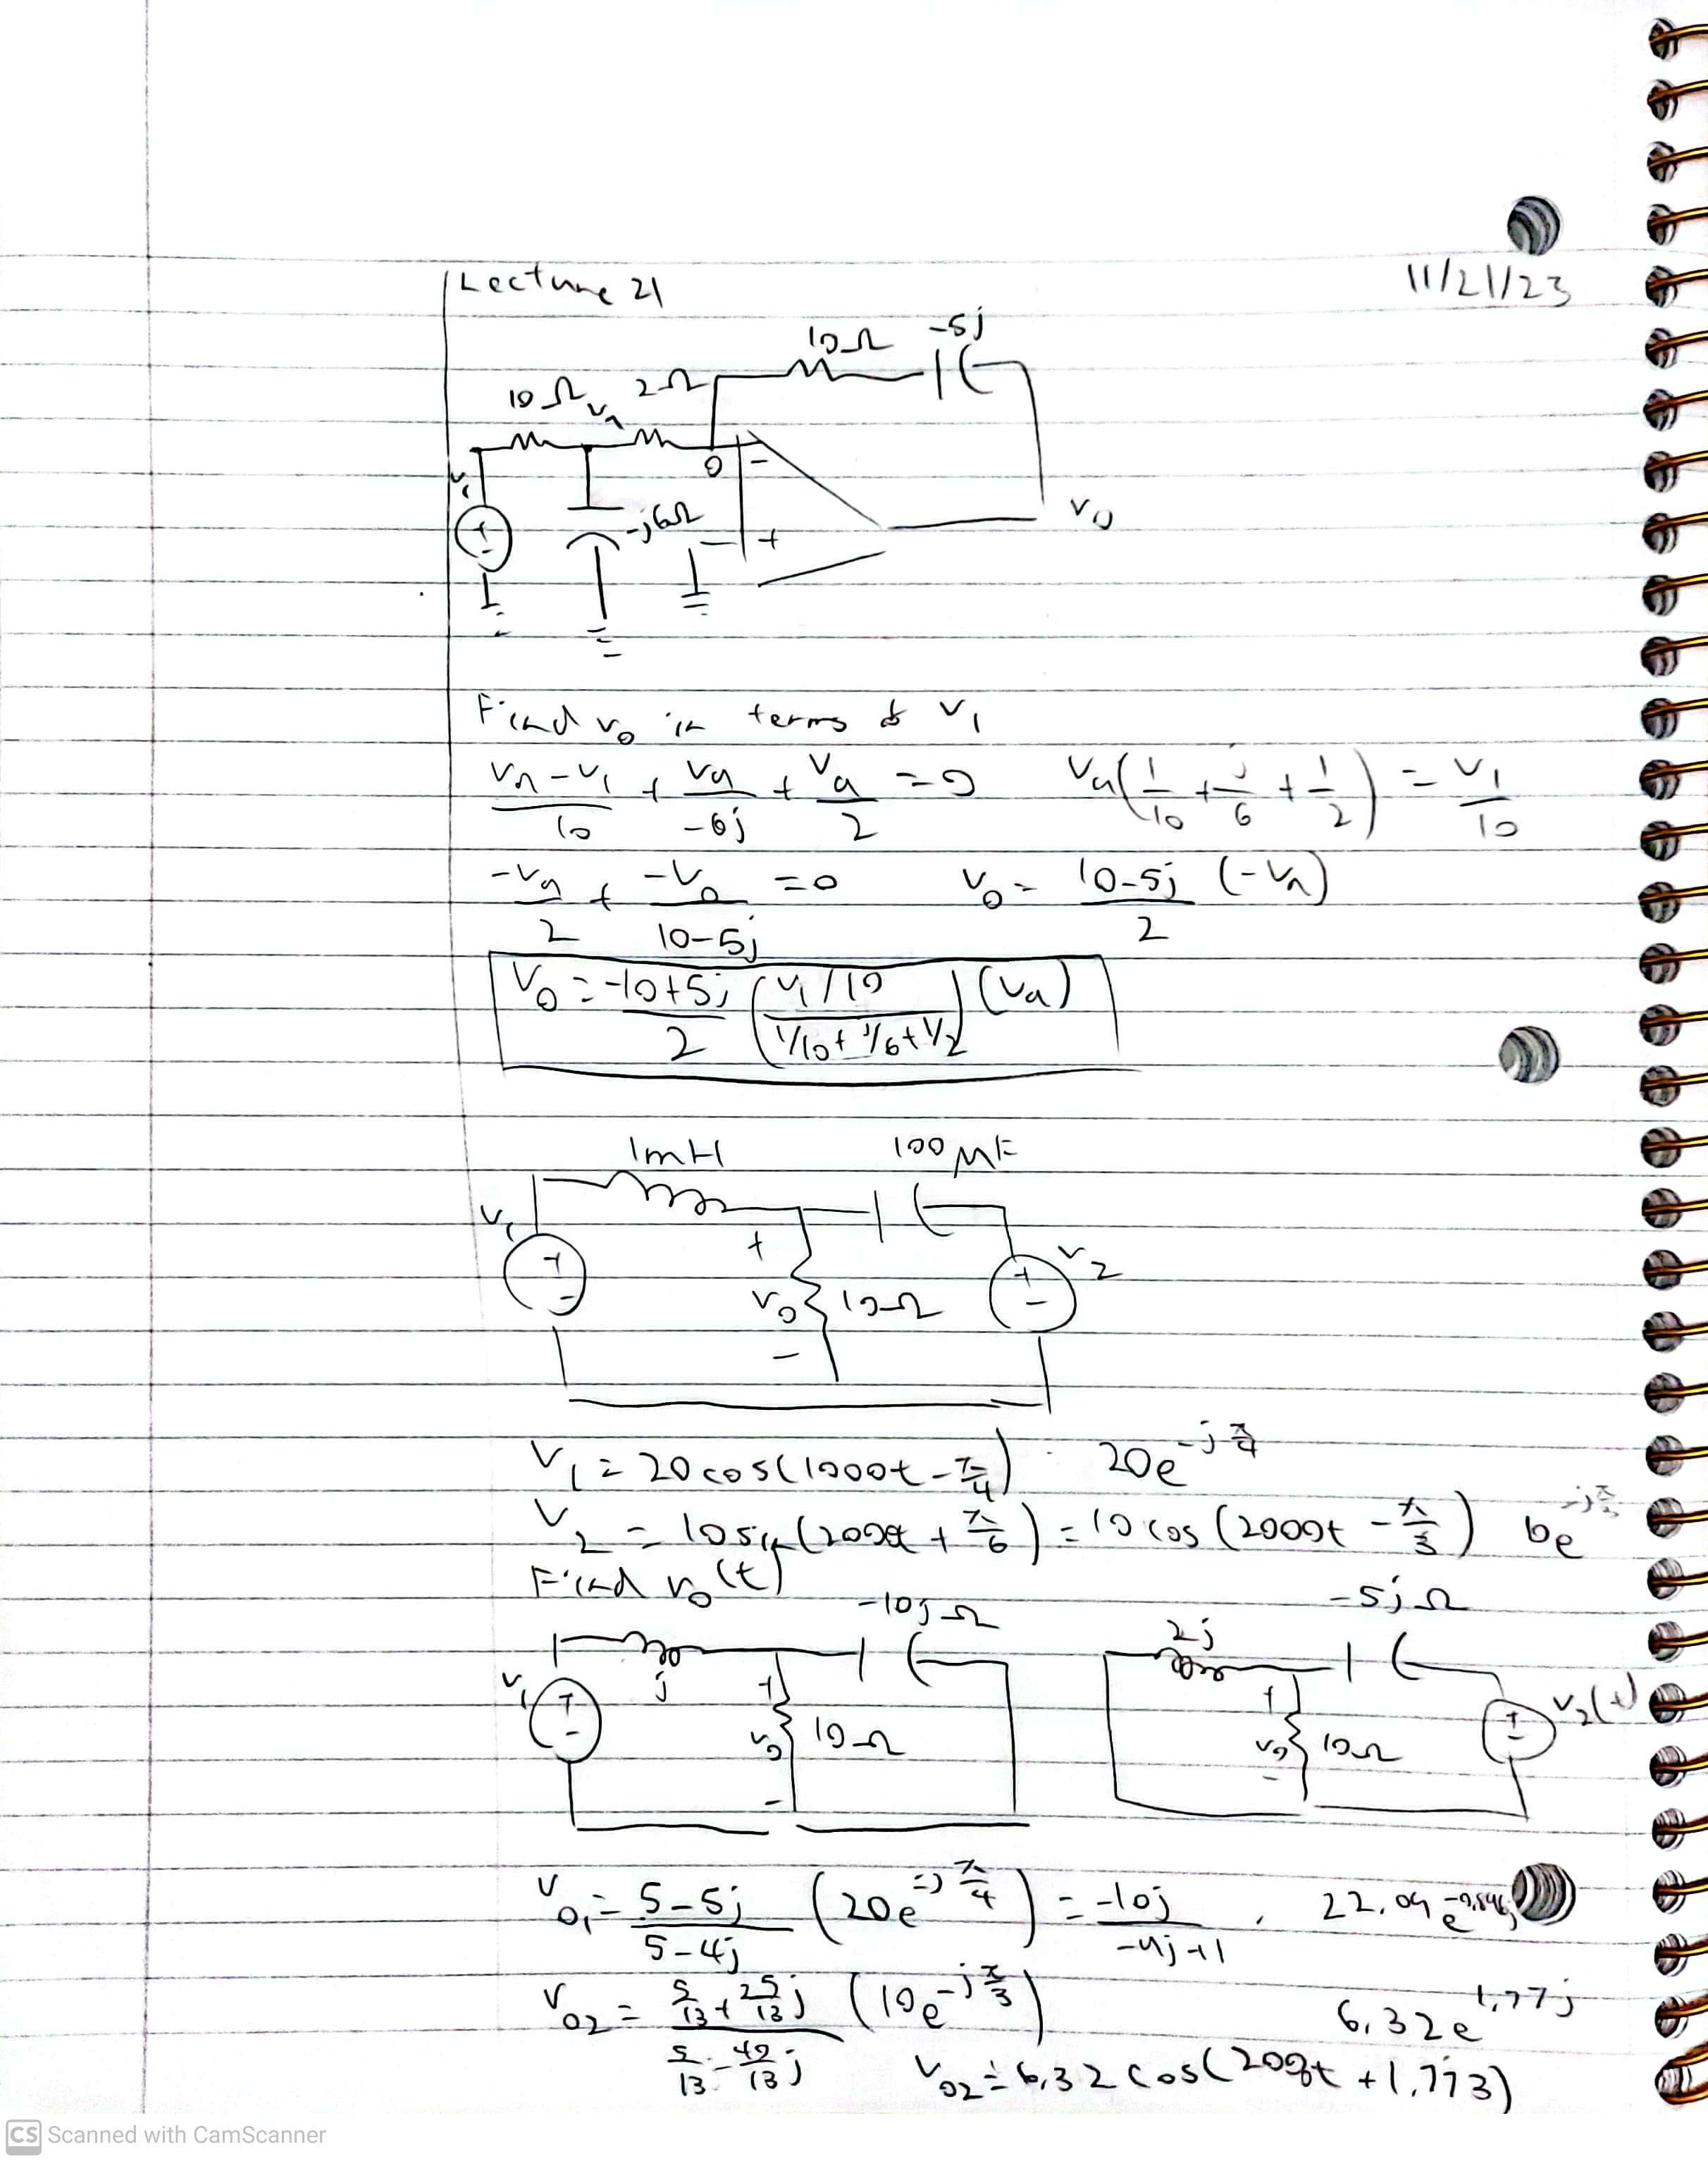 Lecture 21
11/21/23
10Ω -5j
10Ω va 2Ω
v1 + - 0 - -j6Ω + vo
Find vo in terms of v1
(va-v1)/10 + va/-6j + va/2 = 0 va(1/10 + j/6 + 1/2) = v1/10
-va/2 + -vo/(10-5j) = 0 vo = (10-5j)/2 (-va)
vo = (-10+5j)/2 ((v1/10)/(1/10 + j/6 + 1/2)) (va)
1mH 100μF
v1 + - + vo - 10Ω + - v2
v1 = 20cos(1000t - π/4) 20e^-jπ/4
v2 = 10sin(2000t + π/6) = 10cos(2000t - π/3)
Find vo(t)
-10jΩ -5jΩ
v1 + - j + vo - 10Ω 2j + vo - 10Ω + - v2(t)
vo1 = (5-5j)/(5-4j) (20e^-jπ/4) = -10j/(-4j+1)
vo2 = (5/13 + 25/13 j)/(5/13 - 40/13 j) (10e^-jπ/3) 6.32e^1.77j
vo2 = 6.32cos(2000t + 1.773)
CS Scanned with CamScanner